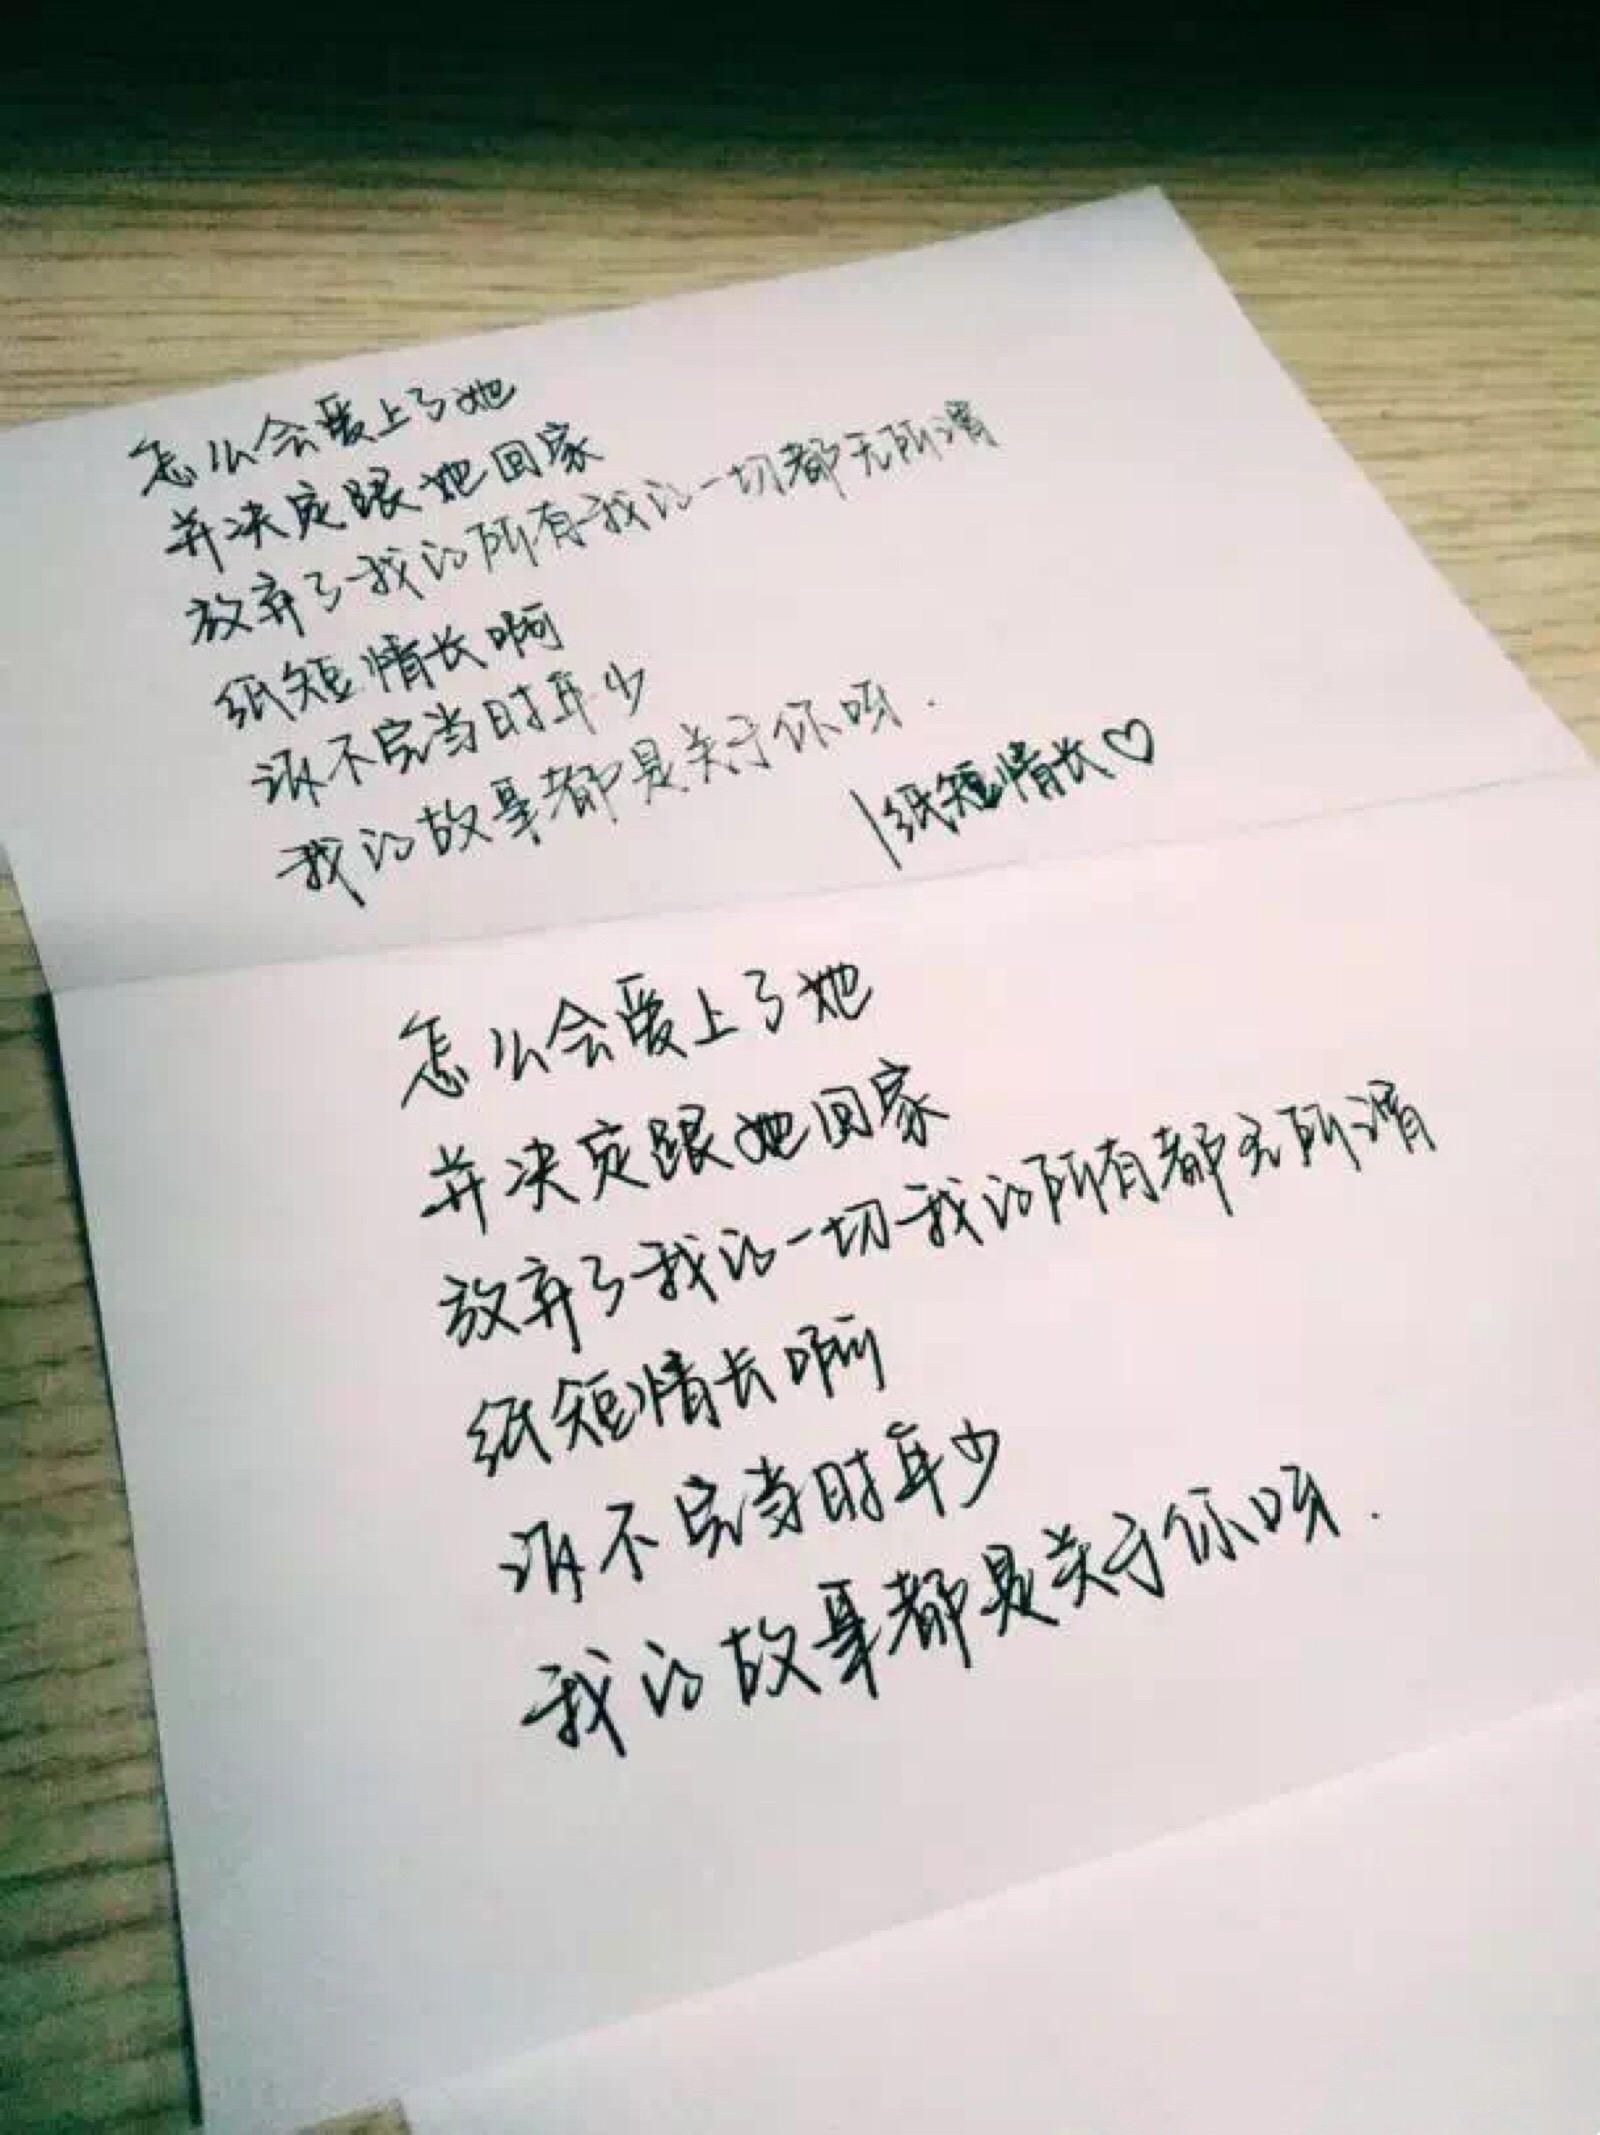 怎么会爱上了她
并决定跟她回家
放弃了我的所有我的一切都无所谓
纸短情长啊
诉不完当时年少
我的故事都是关于你呀.
|纸短情长♡
怎么会爱上了她
并决定跟她回家
放弃了我的一切我的所有都无所谓
纸短情长啊
诉不完当时年少
我的故事都是关于你呀.